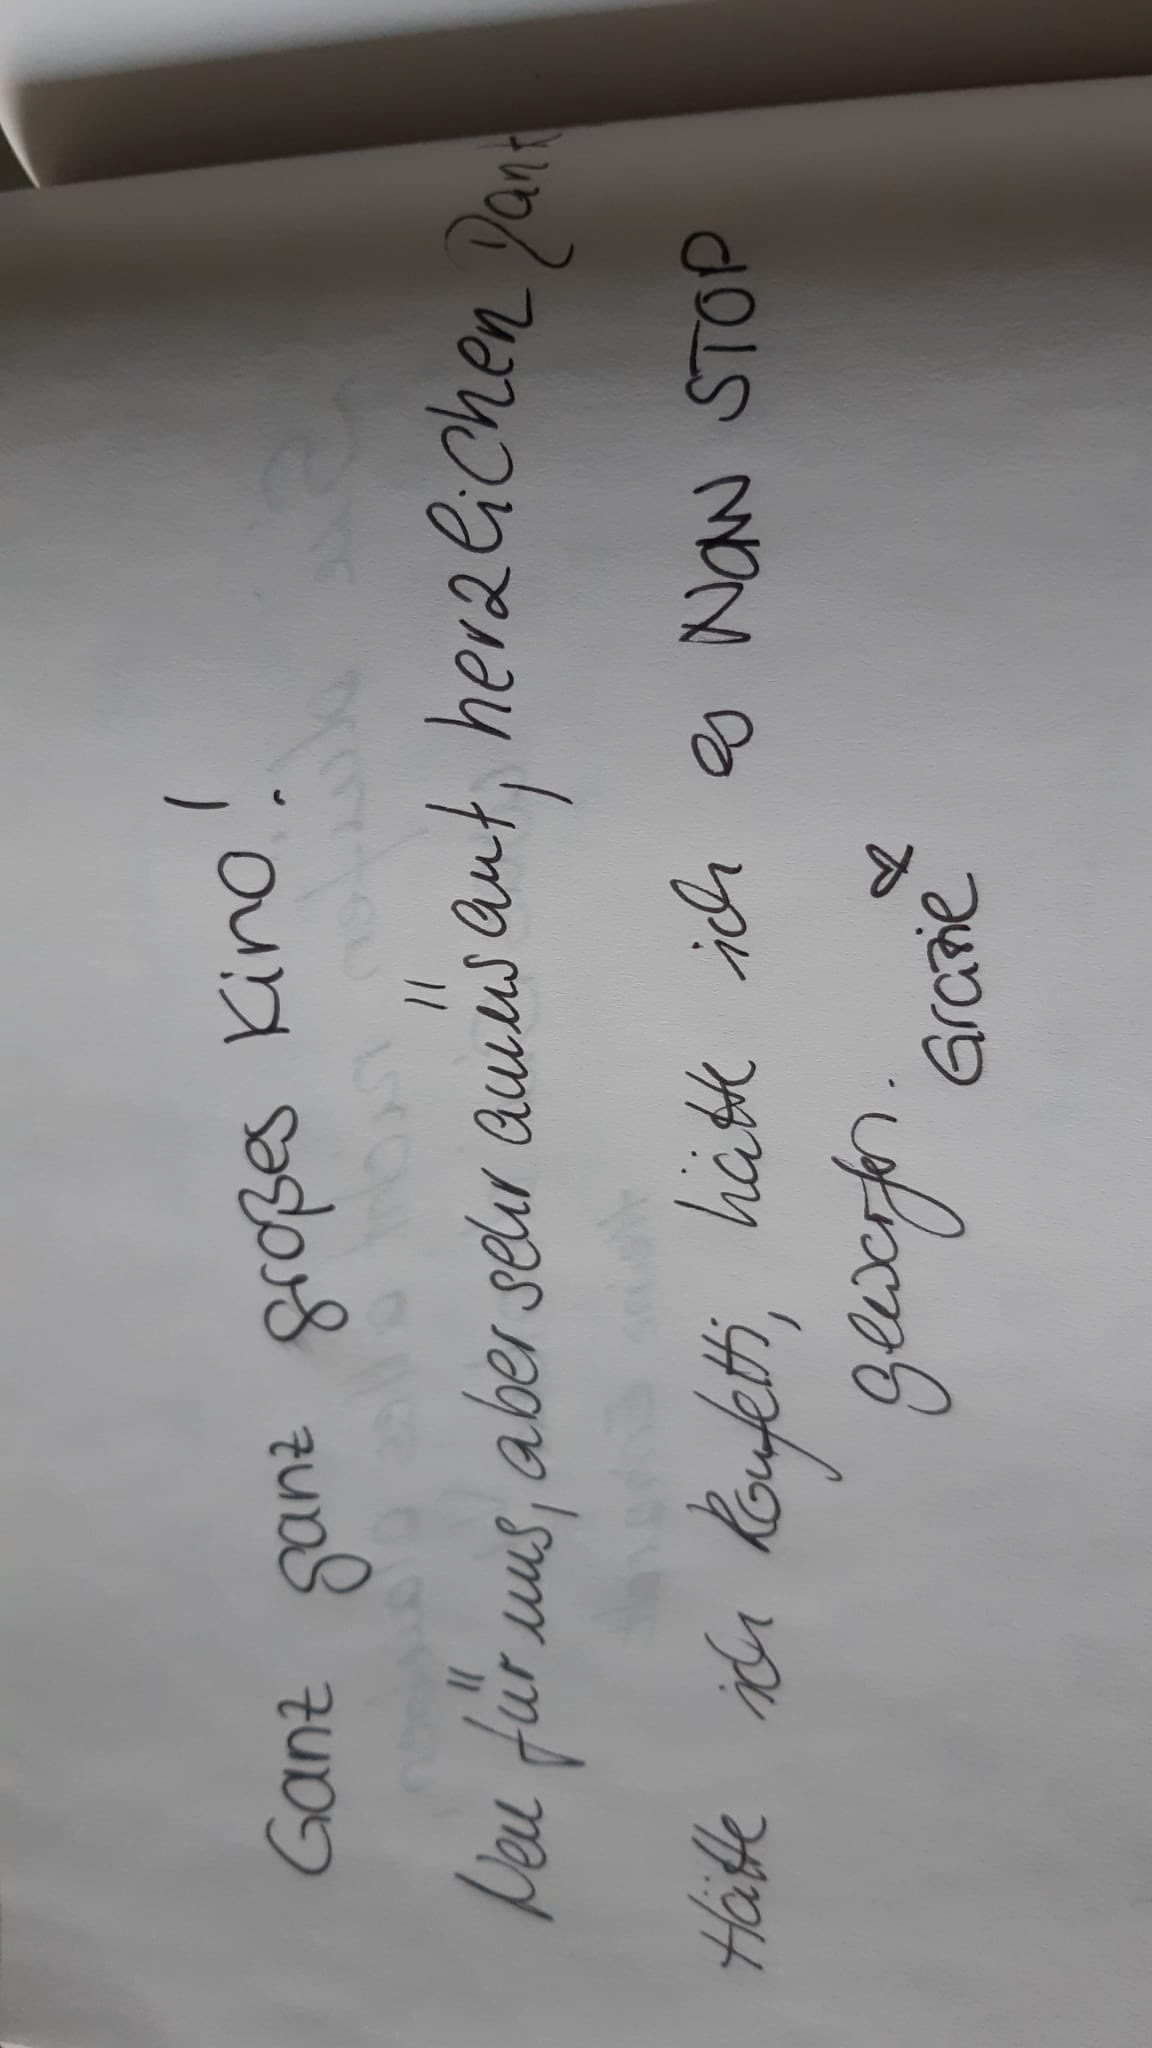 Ganz ganz großes Kino!
Neu für uns, aber sehr amüsant, herzlichen Dank
Hätte ich Konfetti, hätte ich es NON STOP
geworfen.
Grazie